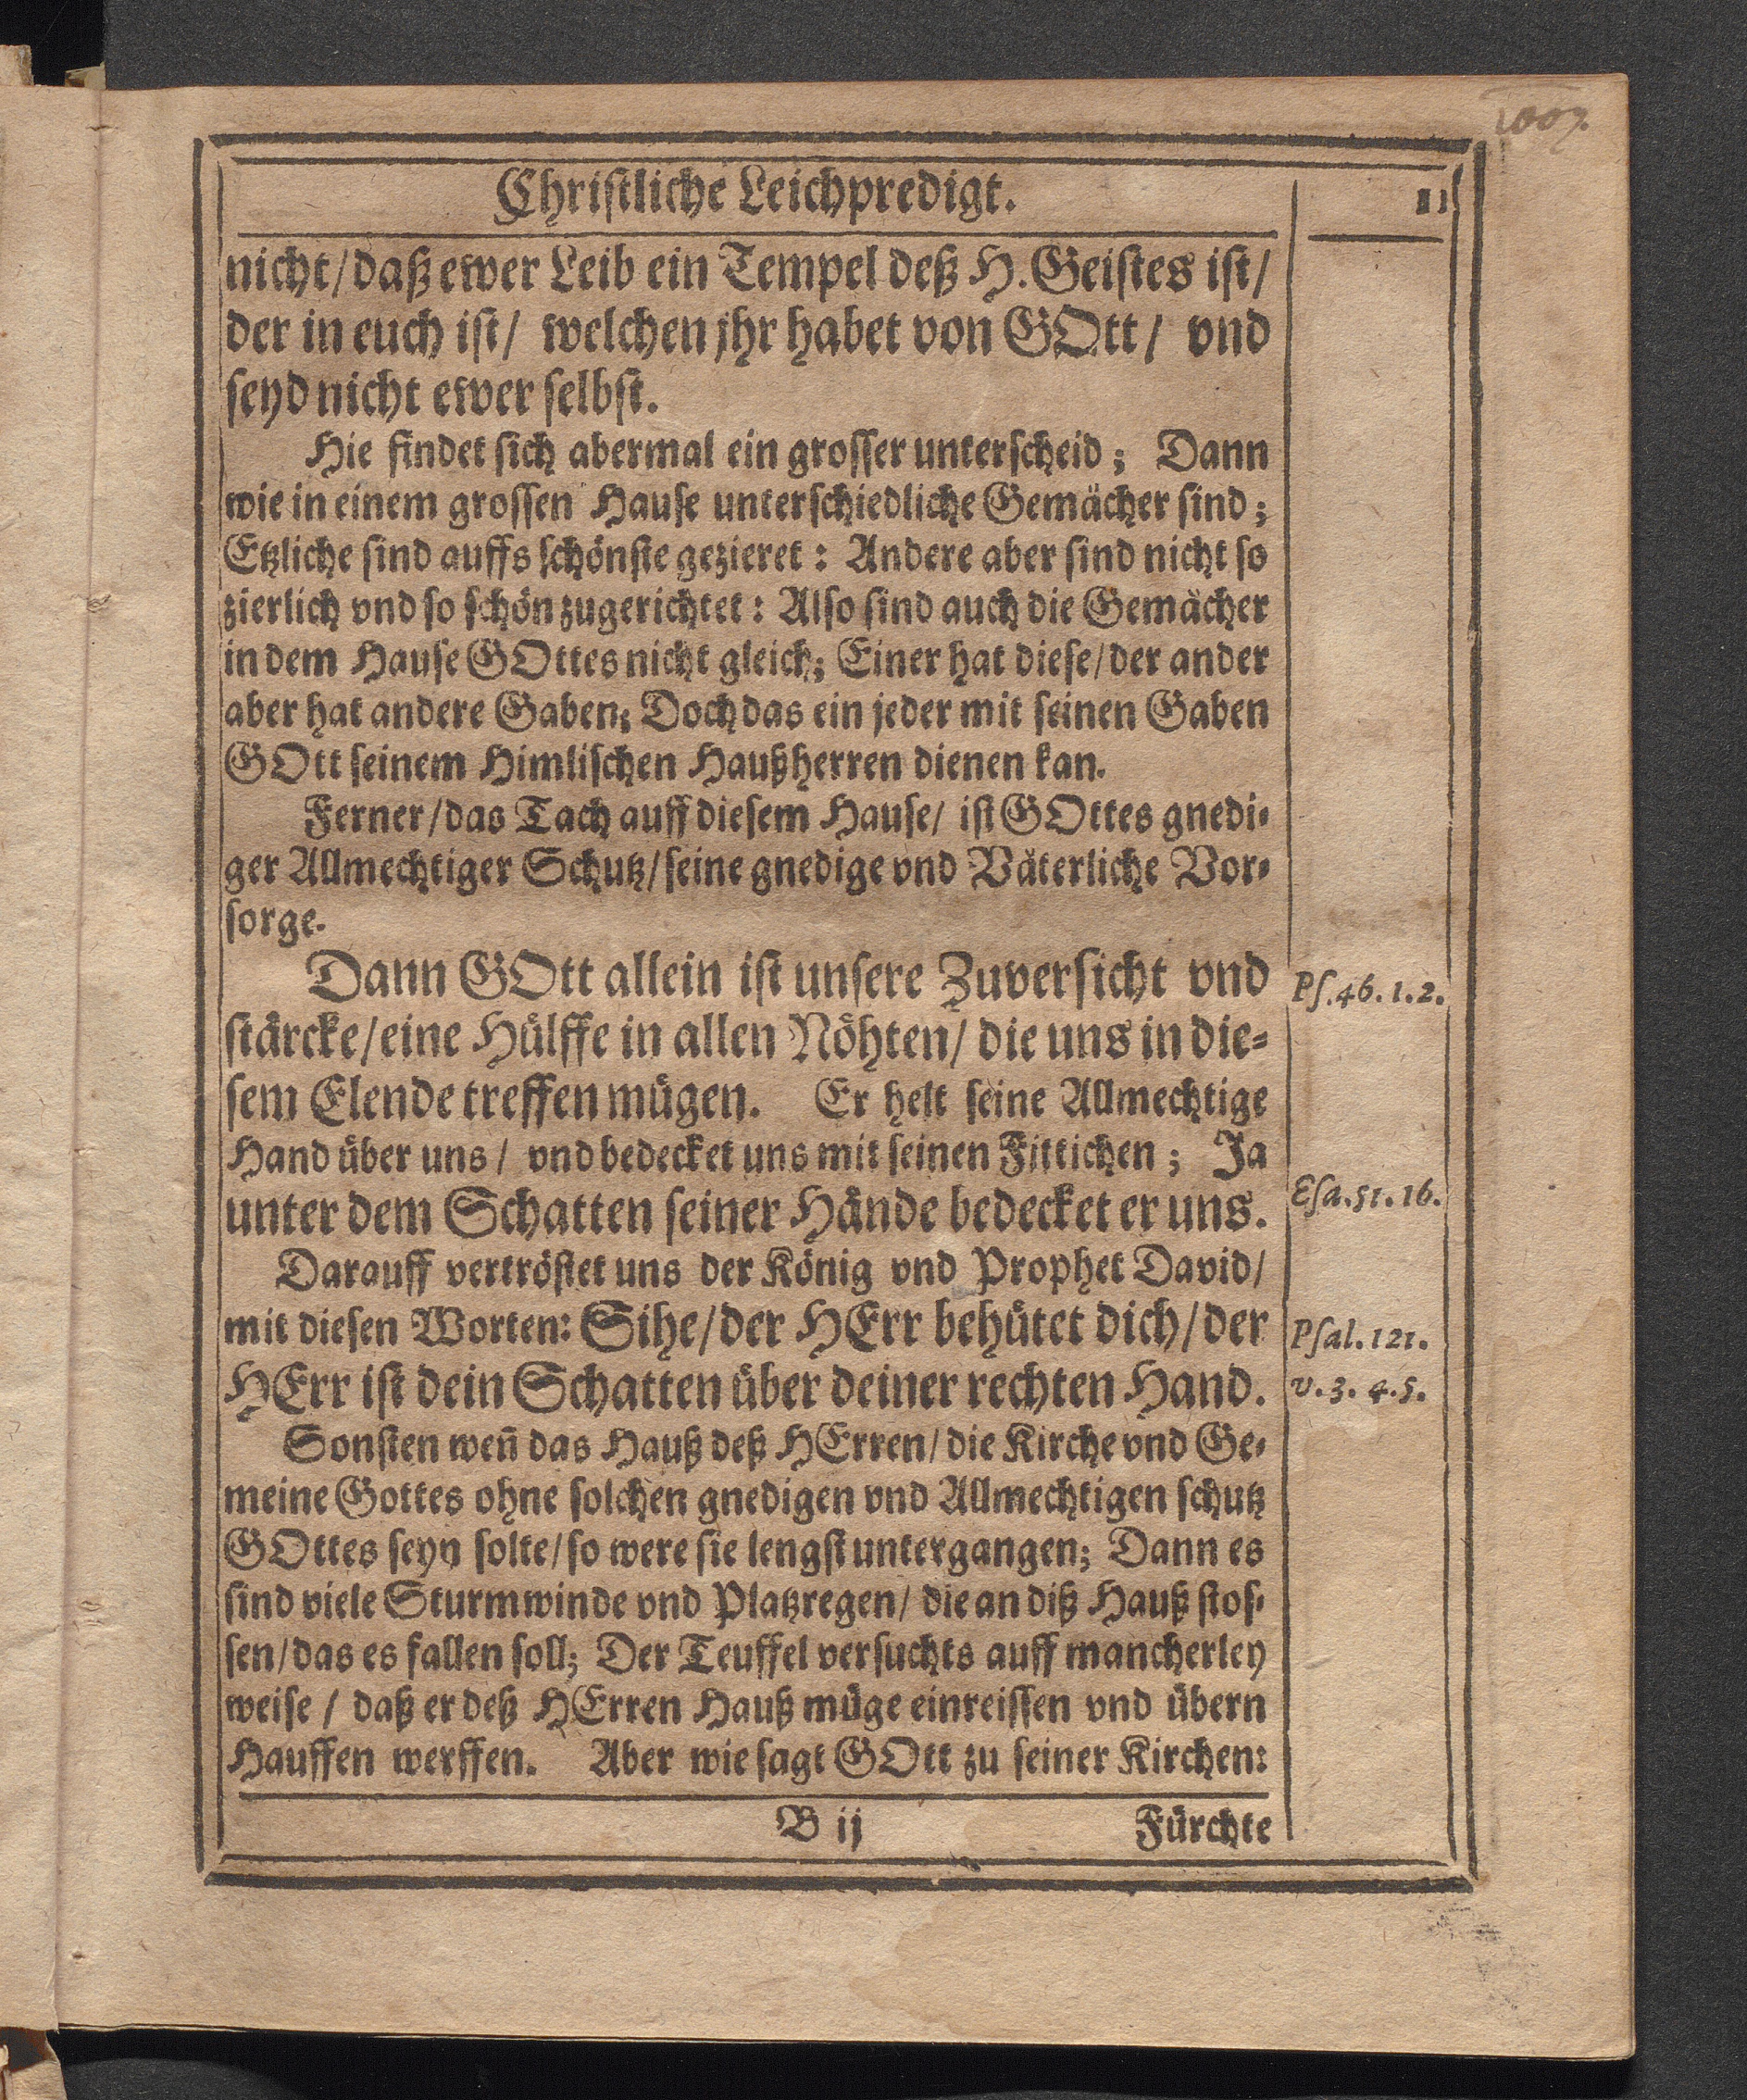 1009.
Christliche Leichpredigt. 11
nicht/ daß ewer Leib ein Tempel deß H. Geistes ist/
der in euch ist/ welchen jhr habet von GOtt/ vnd
seyd nicht ewer selbst.
Hie findet sich abermal ein grosser unterscheid; Dann
wie in einem grossen Hause unterschiedliche Gemächer sind;
Etzliche sind auffs schönste gezieret: Andere aber sind nicht so
zierlich vnd so schön zugerichtet: Also sind auch die Gemächer
in dem Hause GOttes nicht gleich; Einer hat diese/ der ander
aber hat andere Gaben; Doch das ein jeder mit seinen Gaben
GOtt seinem Himlischen Haußherren dienen kan.
Ferner/ das Tach auff diesem Hause/ ist GOttes gnedi-
ger Allmechtiger Schutz/ seine gnedige vnd Väterliche Vor-
sorge.
Dann GOtt allein ist unsere Zuversicht vnd
Ps. 46. 1. 2.
stärcke/ eine Hülffe in allen Nöhten/ die uns in die-
sem Elende treffen mügen. Er helt seine Allmechtige
Hand über uns/ vnd bedecket uns mit seinen Fittichen; Ja
unter dem Schatten seiner Hände bedecket er uns.
Esa. 51. 16.
Darauff vertröstet uns der König vnd Prophet David/
mit diesen Worten: Sihe/ der HErr behütet dich/ der
Psal. 121.
HErr ist dein Schatten über deiner rechten Hand.
v. 3. 4. 5.
Sonsten weñ das Hauß deß HErren/ die Kirche vnd Ge-
meine Gottes ohne solchen gnedigen vnd Allmechtigen schutz
GOttes seyn solte/ so were sie lengst untergangen; Dann es
sind viele Sturmwinde vnd Platzregen/ die an diß Hauß stos-
sen/ das es fallen soll; Der Teuffel versuchts auff mancherley
weise/ daß er deß HErren Hauß müge einreissen vnd übern
Hauffen werffen. Aber wie sagt GOtt zu seiner Kirchen:
B ij Fürchte